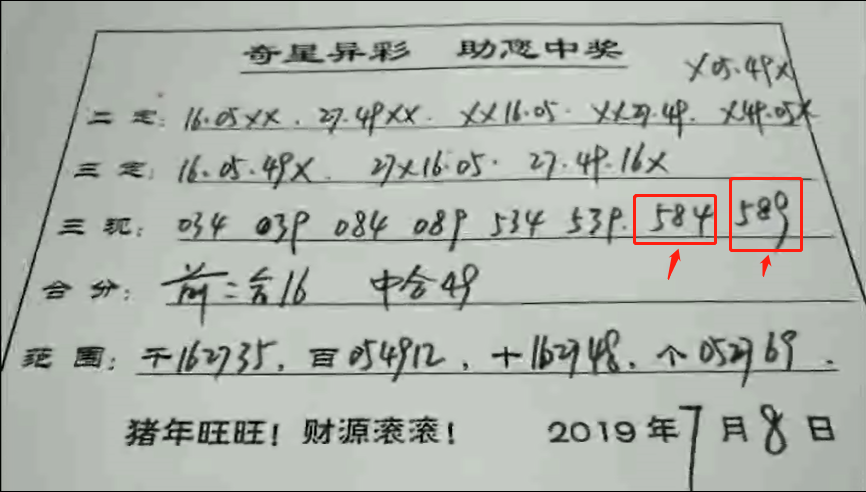 奇星异彩 助您中奖
X05.49X
二定: 16.05XX. 27.49XX. XX16.05. XX27.49. X49.05X
三定: 16.05.49X. 27X16.05. 27.49.16X
三现: 034 039 084 089 534 539. 584 589
合分: 前二合16 中合49
范围: 千162735. 百054912. 十162748. 个052769.
猪年旺旺! 财源滚滚! 2019年7月8日